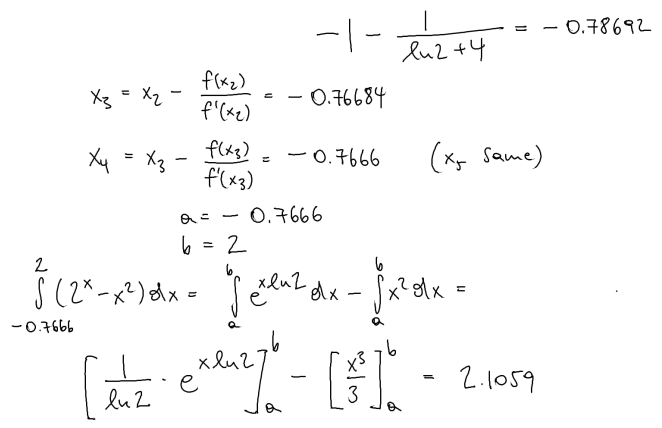 -1 - 1/(ln2+4) = -0.78692
x₃ = x₂ - f(x₂)/f'(x₂) = -0.76684
x₄ = x₃ - f(x₃)/f'(x₃) = -0.7666 (x₅ same)
a = -0.7666
b = 2
∫_{-0.7666}^{2} (2^x - x²) dx = ∫_a^b e^{x ln2} dx - ∫_a^b x² dx =
[1/ln2 · e^{x ln2}]_a^b - [x³/3]_a^b = 2.1059